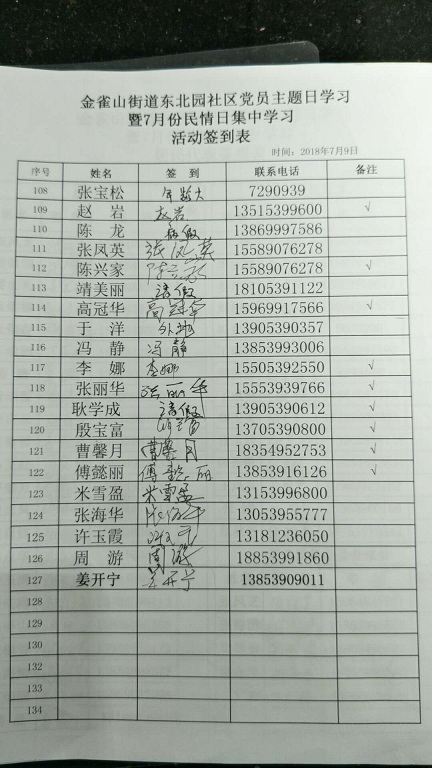 金雀山街道东北园社区党员主题日学习
暨7月份民情日集中学习
活动签到表
时间：2018年7月9日
序号 姓名 签 到 联系电话 备注
108 张宝松 年龄大 7290939
109 赵 岩 赵岩 13515399600 √
110 陈 龙 病假 13869997586
111 张凤英 张凤英 15589076278
112 陈兴家 陈兴家 15589076278 √
113 靖美丽 请假 18105391122
114 高冠华 高冠华 15969917566 √
115 于 洋 外地 13905390357
116 冯 静 冯静 13853993006
117 李 娜 李娜 15505392550 √
118 张丽华 张丽华 15553939766 √
119 耿学成 请假 13905390612 √
120 殷宝富 13705390800 √
121 曹馨月 曹馨月 18354952753 √
122 傅懿丽 傅懿丽 13853916126 √
123 米雪盈 米雪盈 13153996800
124 张海华 张海华 13053955777
125 许玉霞 13181236050
126 周 游 周游 18853991860
127 姜开宁 姜开宁 13853909011
128
129
130
132
133
134